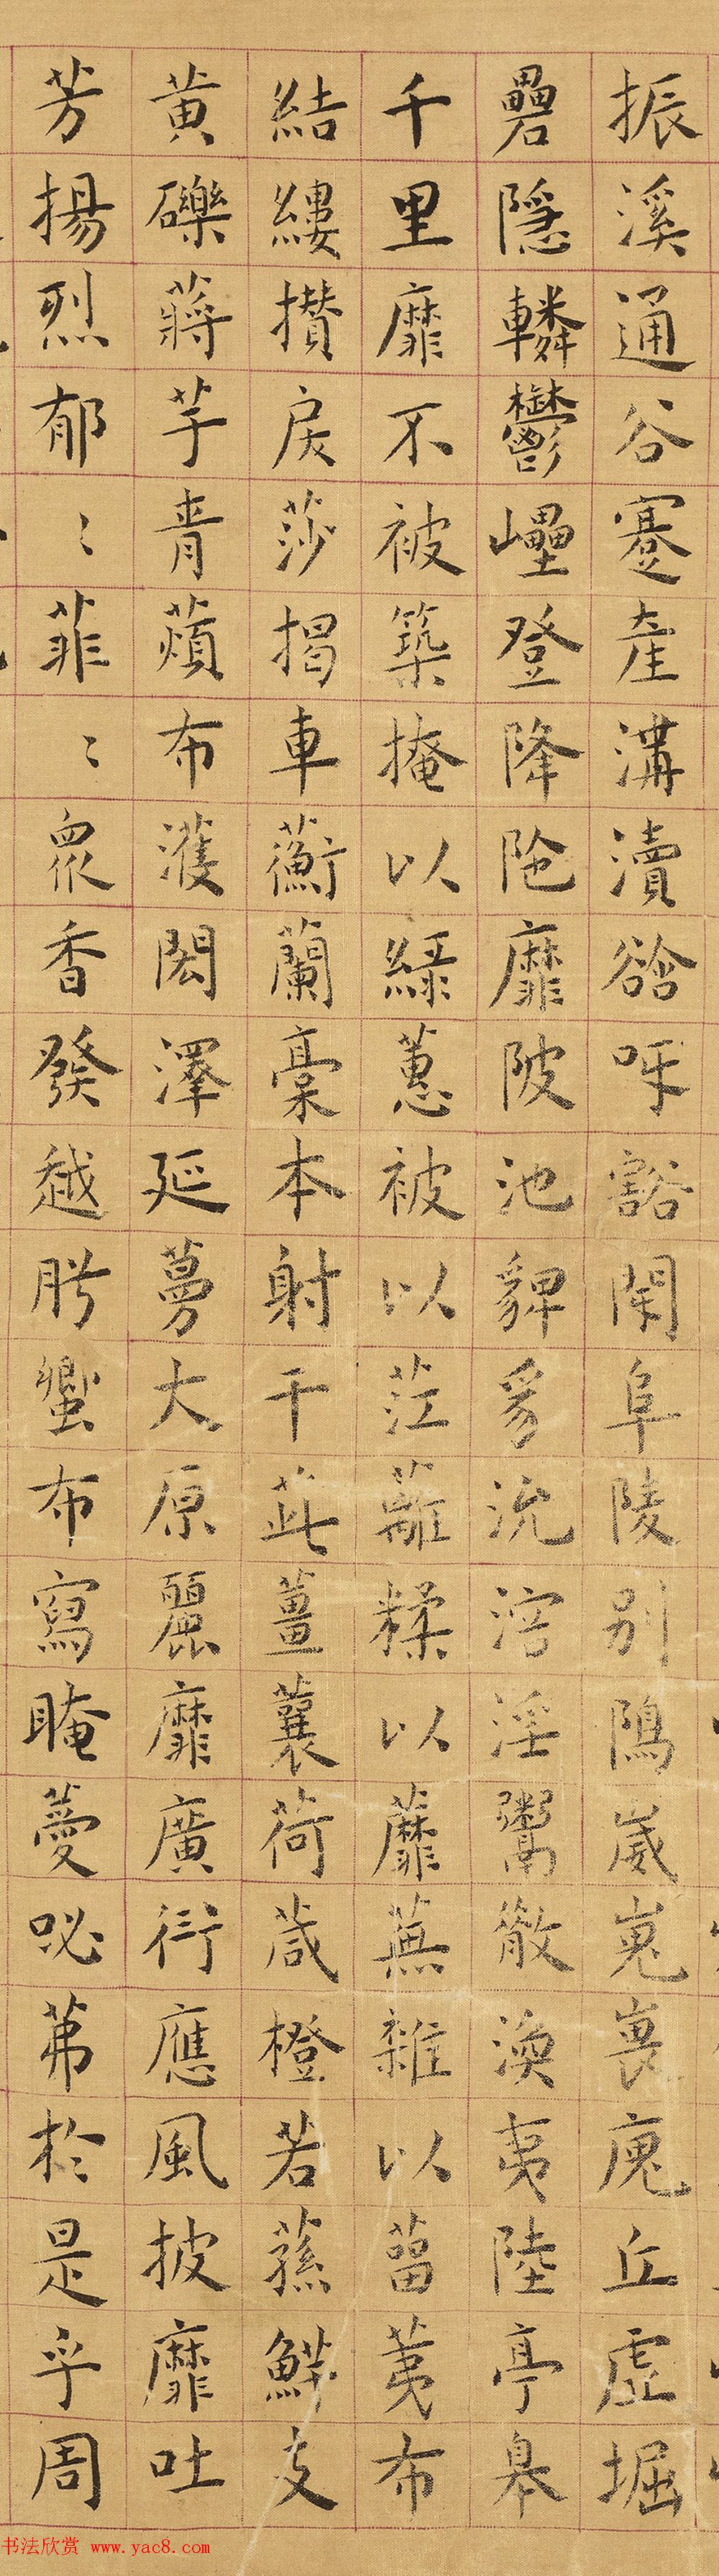 振溪通谷蹇産溝瀆谽呀豁閕阜陵别隝崴嵬㟪廆丘虚堀
礨隱轔鬱㠥登降陁靡陂池貏豸沇溶淫鬻散渙夷陸亭皐
千里靡不被築掩以緑蕙被以茳蘺糅以蘼蕪雜以菑荑布
結縷攅戾莎揭車蘅蘭稾本射干茈薑蘘荷葴橙若蓀鮮支
黄礫蔣芧青薠布濩閎澤延蔓大原麗靡廣衍應風披靡吐
芳揚烈郁〻菲〻衆香發越肸蠁布寫晻薆咇茀於是乎周
书法欣赏 www.yac8.com